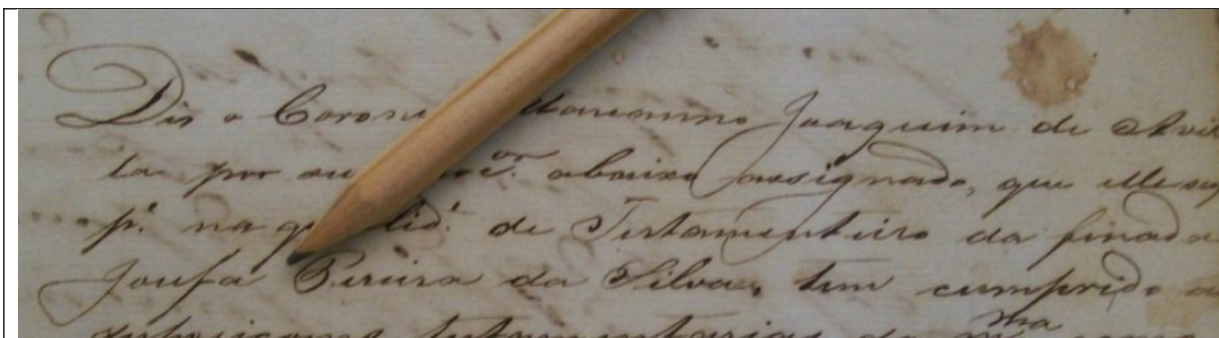 Diz o Coron Marianno Joaquim de Avil
la por su oc.or abaixo assignado, que elle
p.r na qu lid.e de Testamenteiro da finada
Josefa Pereira da Silva, tem cumprido a
testamentarias da m.ma